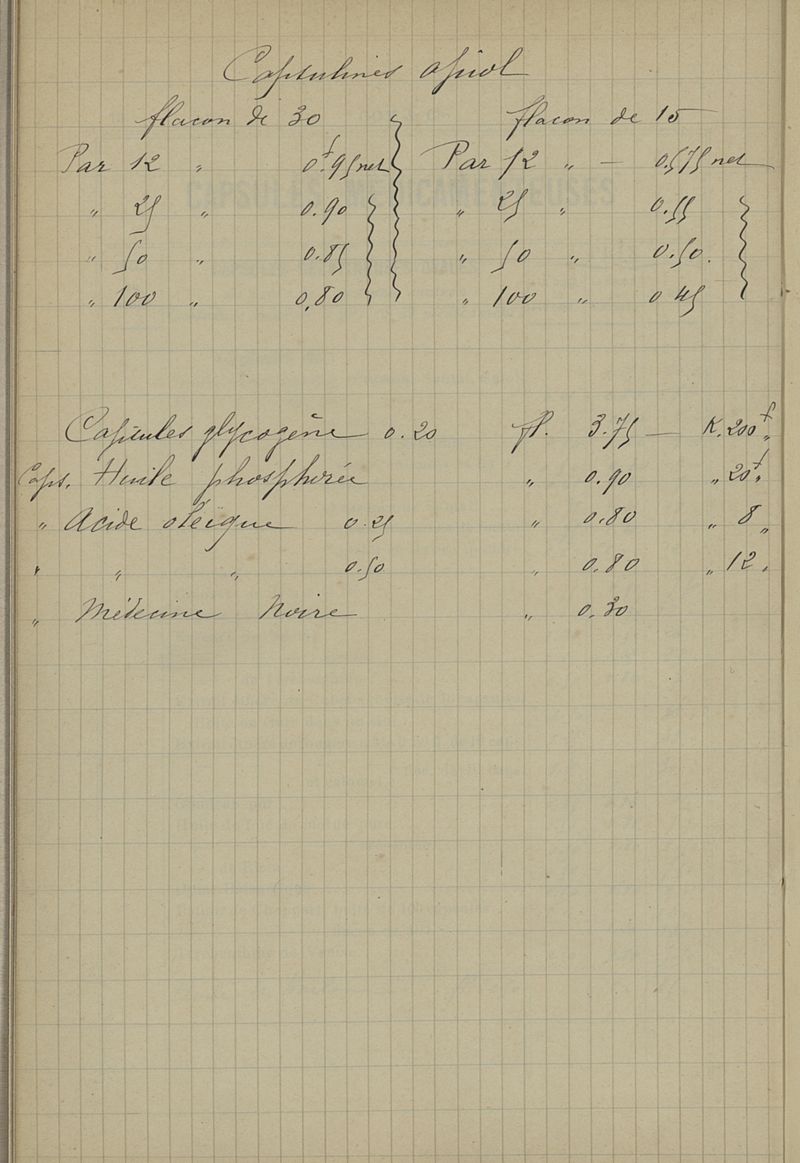 Capsulines apiol
flacon de 30 flacon de 15
Par 12 " 0f.95 net Par 12 " — 0.575 net
" 25 " 0.90 " 25 " 0.55
" 50 " 0.85 " 50 " 0.50.
" 100 " 0.80 " 100 " 0 45
Capsules glycogène 0.20 fl. 3.75 — K. 200f"
Caps. Huile phosphorée " 0.90 " 20f"
" Acide oléique 0.25 " 0.80 " 8 "
" " " 0.50 " 0.80 " 12 "
" Médecine Noire " 0.30
CAPSULES MÉDICAMENTEUSES